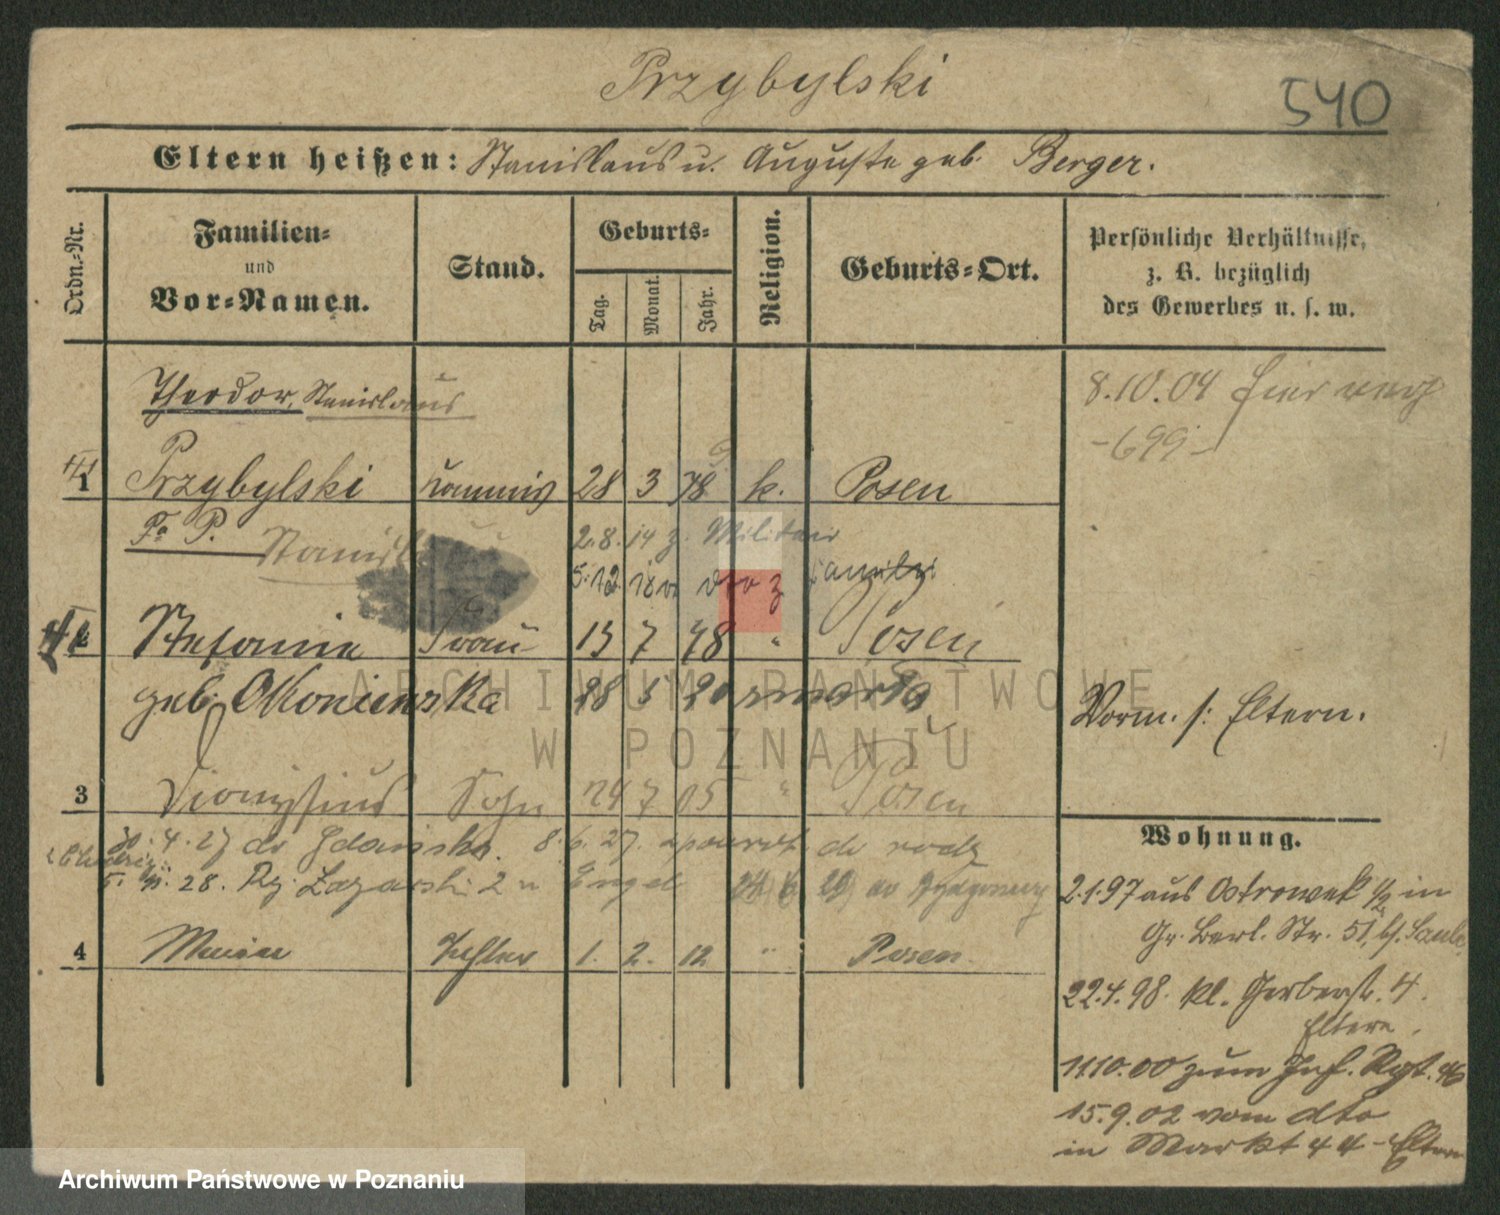 Przybylski
540
Eltern heißen: Stanislaus u. Auguste geb. Berger.
Ordn.-Nr.
Familien-
und
Vor-Namen.
Stand.
Geburts-
Tag.
Monat.
Jahr.
Religion.
Geburts-Ort.
Persönliche Verhältnisse,
z. B. bezüglich
des Gewerbes u. s. w.
Theodor, Stanislaus
8.10.04 hier
-699-
1 Przybylski 28 3 78 k. Posen
Fa P.
2.8.14 z. Militair
5.12.18 v z
Stefanie Frau 13 7 78 " Posen
geb. Okoniewska 28 5 20 zmarła
Vorm. s: Eltern.
3 Dionysius Sohn 24 7 05 " Posen
30.4.27 do Gdańska. 8.6.27. powrót do
28. Łazarski 2 u Engel
4 Tochter 1. 2. 12 " Posen
Wohnung.
2.1.97 aus Ostrowek 1/2 in
Gr. Berl. Str. 51, b/.
22.4.98 kl. Gerberstr. 4.
Eltern.
11.10.00 zum Inf. Rgt. 46
15.9.02 vom dto
in Markt 44 - Eltern
ARCHIWUM PAŃSTWOWE
W POZNANIU
Archiwum Państwowe w Poznaniu